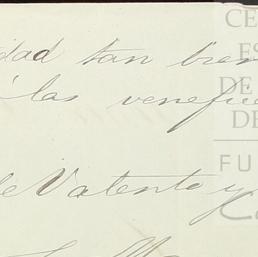 idad tan bien
á las venefi
de Valento y
CE
ES
DE
DE
FU